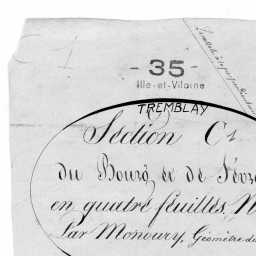 - 35 -
Ille-et-Vilaine
TREMBLAY
Section C
du Bourg et de
en quatre feuilles, N
Par Monoury, Géomètre du